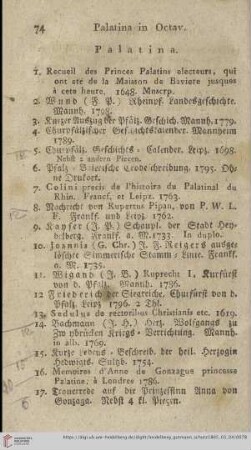 74 Palatina in Octav.
Palatina.
1. Recueil des Princes Palatins electeurs, qui
ont ete de la Maison de Baviere jusques
à cete heure, 1648. Mnscrp.
2. Wund (F. P.) Rheinpf. Landesgeschichte.
Mannh. 1798.
3. Kurzer Auszug der Pfälz. Geschich. Mannh. 1779.
4. Churpfälzischer Geschichtskalender. Mannheim
1789.
5. Churpfälz. Geschichts-Calender. Leipz. 1698.
Nebst 2 andern Piecen.
6. Pfalz Baierische Erdbeschreibung. 1795. Ohne
Druckort.
7. Colini precis de l'histoire du Palatinat du
Rhin. Francf. et Leipz. 1763.
8. Nachricht von Rupertus Pipan, von P. W. L.
F. Frankf. und Leipz. 1762.
9. Kayser (J. P.) Schaupl. der Stadt Heydelberg.
Frankf. a. M. 1733. In duplo.
10. Joannis (G. Chr.) J. F. Reigers ausgelöschte
Simmerische Stamm-Linie. Frankf.
a. M. 1735.
11. Wigand (J. B.) Ruprecht I. Kurfürst
von d. Pfalz. Mannh. 1786.
12 Friederich der Siegreiche, Churfürst von d.
Pfalz. Leipz. 1796. 2 Thl.
13. Sedulus de rectoribus Christianis etc. 1619.
14. Bachmann (J. H.) Herz. Wolfgangs zu
Zweybrücken Kriegs-Verrichtung. Mannheim
alb. 1769.
15. Kurze Lebens-Beschreib. der heil. Herzogin
Hedwigis. Sulzb. 1754.
16. Memoires d'Anne de Gonzague princesse
Palatine, à Londres 1786.
17. Trauerrede auf der Prinzessinn Anna von
Gonzaga. Nebst 4 kl. Piezen.